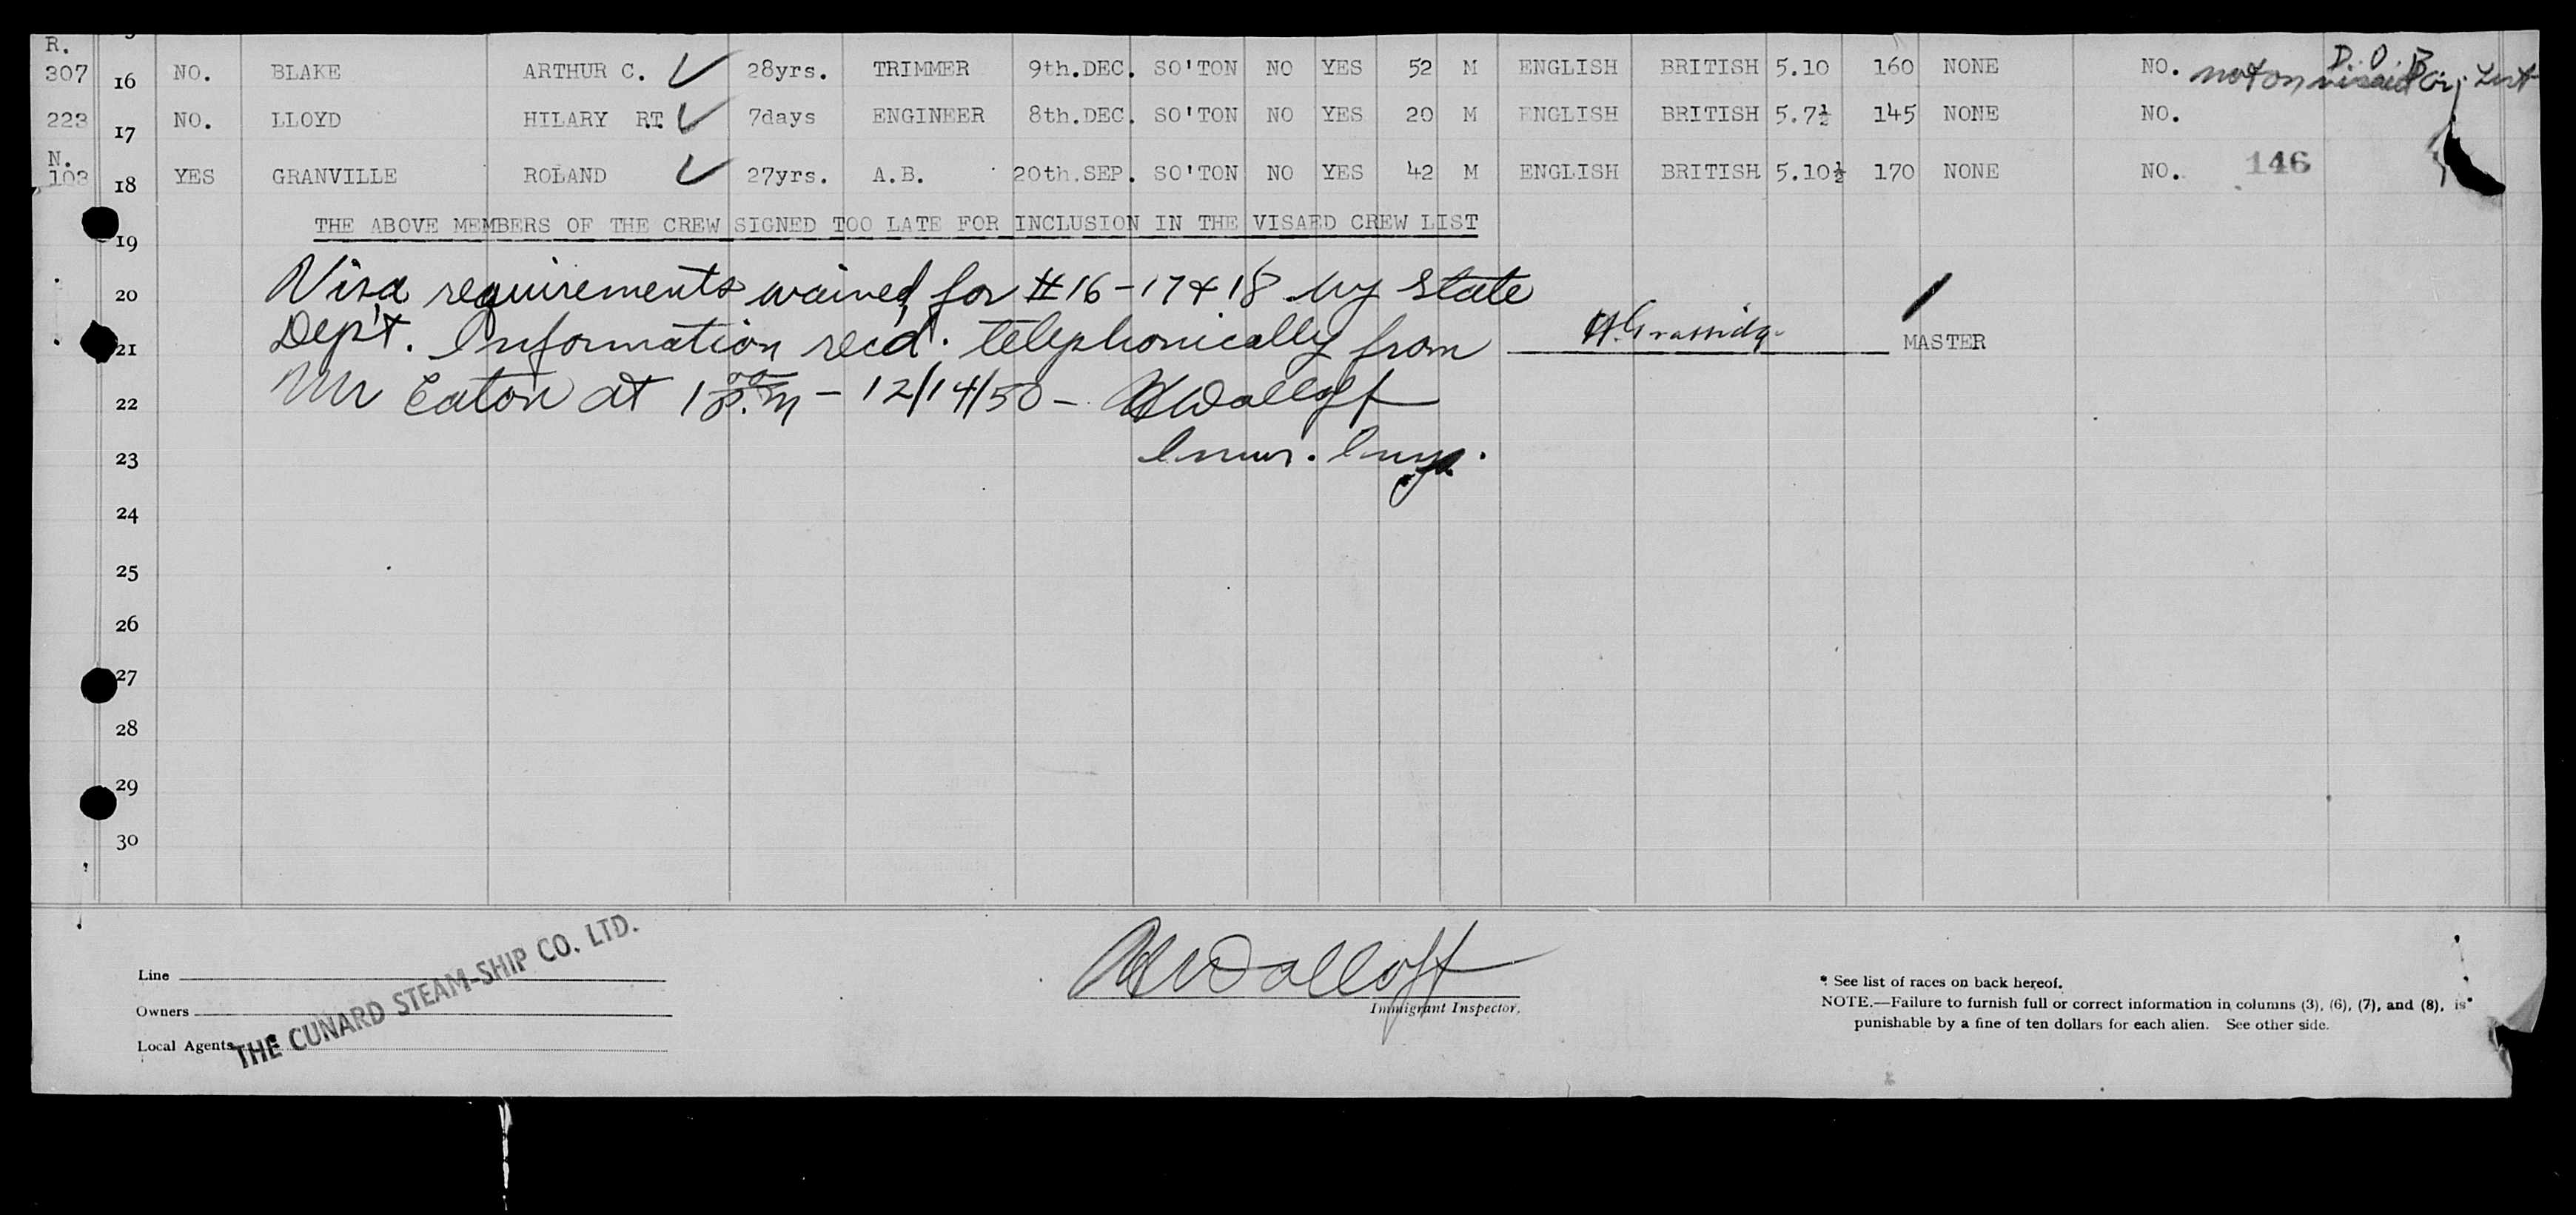 R.
307 16 NO. BLAKE ARTHUR C. ✓ 28yrs. TRIMMER 9th.DEC. SO'TON NO YES 52 M ENGLISH BRITISH 5.10 160 NONE NO. D.O.B. not on visaed Orig List
223 17 NO. LLOYD HILARY RT. ✓ 7days ENGINEER 8th.DEC. SO'TON NO YES 20 M ENGLISH BRITISH 5.7½ 145 NONE NO.
N.
103 18 YES GRANVILLE ROLAND ✓ 27yrs. A.B. 20th.SEP. SO'TON NO YES 42 M ENGLISH BRITISH 5.10½ 170 NONE NO. 146
19 THE ABOVE MEMBERS OF THE CREW SIGNED TOO LATE FOR INCLUSION IN THE VISAED CREW LIST
20 Visa requirements waived for #16-17 & 18 by State
21 Dep't. Information rec'd. telephonically from MASTER
22 Mr Eaton at 1 00 P.M - 12/14/50 -
23 Immr. Insp.
24
25
26
27
28
29
30
Line
Owners
Local Agents
THE CUNARD STEAM-SHIP CO. LTD.
Immigrant Inspector.
* See list of races on back hereof.
NOTE.—Failure to furnish full or correct information in columns (3), (6), (7), and (8), is
punishable by a fine of ten dollars for each alien. See other side.